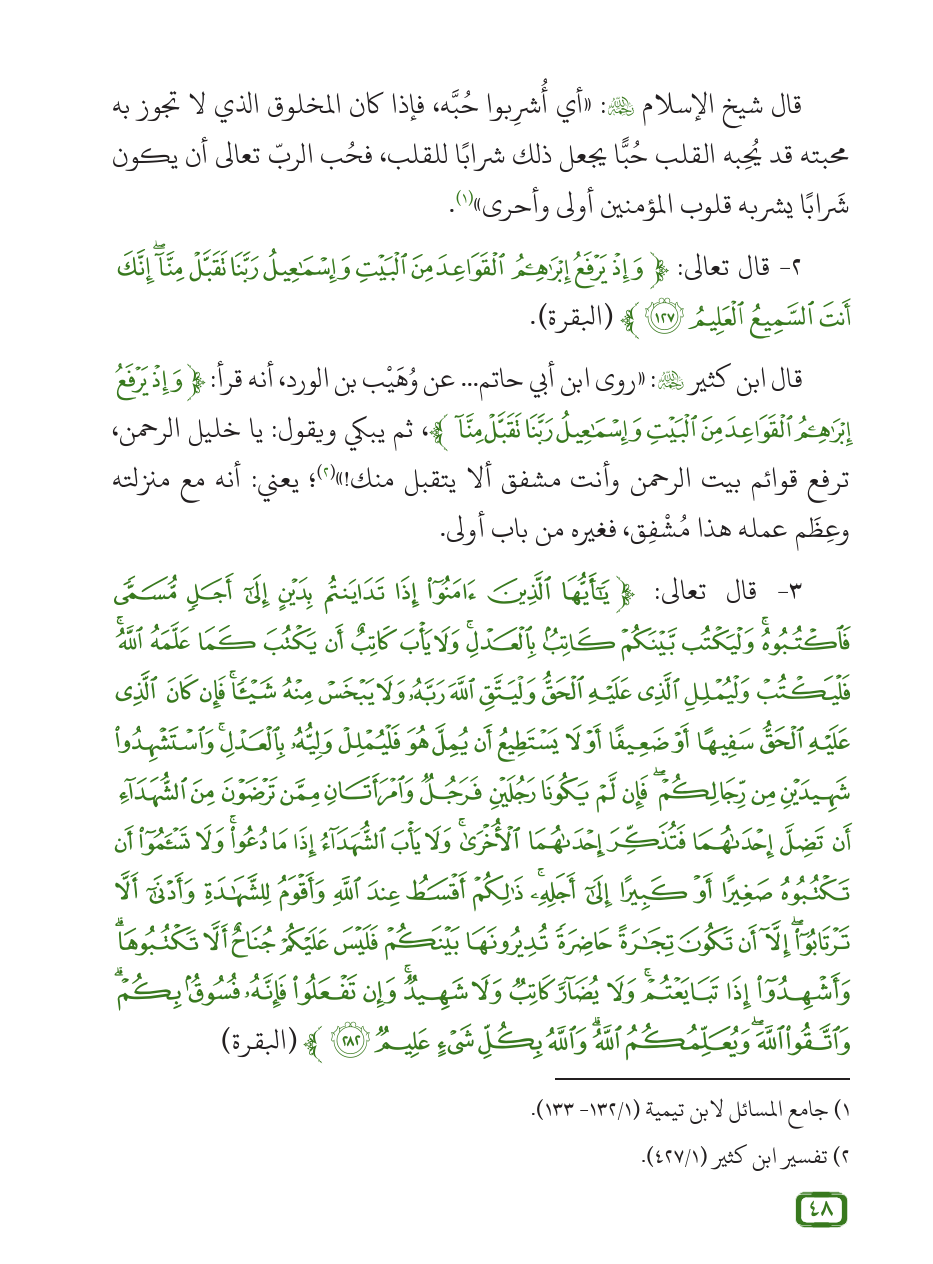 قال شيخ الإسلام ﵀: «أي أُشرِبوا حُبَّه، فإذا كان المخلوق الذي لا تجوز به
محبته قد يُحِبه القلب حُبًّا يجعل ذلك شرابًا للقلب، فحُب الربّ تعالى أن يكون
شَرابًا يشربه قلوب المؤمنين أولى وأحرى»(١).
٢- قال تعالى: ﴿وَإِذْ يَرْفَعُ إِبْرَٰهِـۧمُ ٱلْقَوَاعِدَ مِنَ ٱلْبَيْتِ وَإِسْمَـٰعِيلُ رَبَّنَا تَقَبَّلْ مِنَّآ ۖ إِنَّكَ
أَنتَ ٱلسَّمِيعُ ٱلْعَلِيمُ ١٢٧﴾ (البقرة).
قال ابن كثير ﵀: «روى ابن أبي حاتم... عن وُهَيْب بن الورد، أنه قرأ: ﴿وَإِذْ يَرْفَعُ
إِبْرَٰهِـۧمُ ٱلْقَوَاعِدَ مِنَ ٱلْبَيْتِ وَإِسْمَـٰعِيلُ رَبَّنَا تَقَبَّلْ مِنَّآ﴾، ثم يبكي ويقول: يا خليل الرحمن،
ترفع قوائم بيت الرحمن وأنت مشفق ألا يتقبل منك!»(٢)؛ يعني: أنه مع منزلته
وعِظَم عمله هذا مُشْفِق، فغيره من باب أولى.
٣- قال تعالى: ﴿يَـٰٓأَيُّهَا ٱلَّذِينَ ءَامَنُوٓا۟ إِذَا تَدَايَنتُم بِدَيْنٍ إِلَىٰٓ أَجَلٍ مُّسَمًّى
فَٱكْتُبُوهُ ۚ وَلْيَكْتُب بَّيْنَكُمْ كَاتِبٌۢ بِٱلْعَدْلِ ۚ وَلَا يَأْبَ كَاتِبٌ أَن يَكْتُبَ كَمَا عَلَّمَهُ ٱللَّهُ ۚ
فَلْيَكْتُبْ وَلْيُمْلِلِ ٱلَّذِى عَلَيْهِ ٱلْحَقُّ وَلْيَتَّقِ ٱللَّهَ رَبَّهُۥ وَلَا يَبْخَسْ مِنْهُ شَيْـًٔا ۚ فَإِن كَانَ ٱلَّذِى
عَلَيْهِ ٱلْحَقُّ سَفِيهًا أَوْ ضَعِيفًا أَوْ لَا يَسْتَطِيعُ أَن يُمِلَّ هُوَ فَلْيُمْلِلْ وَلِيُّهُۥ بِٱلْعَدْلِ ۚ وَٱسْتَشْهِدُوا۟
شَهِيدَيْنِ مِن رِّجَالِكُمْ ۖ فَإِن لَّمْ يَكُونَا رَجُلَيْنِ فَرَجُلٌ وَٱمْرَأَتَانِ مِمَّن تَرْضَوْنَ مِنَ ٱلشُّهَدَآءِ
أَن تَضِلَّ إِحْدَىٰهُمَا فَتُذَكِّرَ إِحْدَىٰهُمَا ٱلْأُخْرَىٰ ۚ وَلَا يَأْبَ ٱلشُّهَدَآءُ إِذَا مَا دُعُوا۟ ۚ وَلَا تَسْـَٔمُوٓا۟ أَن
تَكْتُبُوهُ صَغِيرًا أَوْ كَبِيرًا إِلَىٰٓ أَجَلِهِۦ ۚ ذَٰلِكُمْ أَقْسَطُ عِندَ ٱللَّهِ وَأَقْوَمُ لِلشَّهَـٰدَةِ وَأَدْنَىٰٓ أَلَّا
تَرْتَابُوٓا۟ ۖ إِلَّآ أَن تَكُونَ تِجَـٰرَةً حَاضِرَةً تُدِيرُونَهَا بَيْنَكُمْ فَلَيْسَ عَلَيْكُمْ جُنَاحٌ أَلَّا تَكْتُبُوهَا ۗ
وَأَشْهِدُوٓا۟ إِذَا تَبَايَعْتُمْ ۚ وَلَا يُضَآرَّ كَاتِبٌ وَلَا شَهِيدٌ ۚ وَإِن تَفْعَلُوا۟ فَإِنَّهُۥ فُسُوقٌۢ بِكُمْ ۗ
وَٱتَّقُوا۟ ٱللَّهَ ۖ وَيُعَلِّمُكُمُ ٱللَّهُ ۗ وَٱللَّهُ بِكُلِّ شَىْءٍ عَلِيمٌ ٢٨٢﴾ (البقرة)
١) جامع المسائل لابن تيمية (١/١٣٢- ١٣٣).
٢) تفسير ابن كثير (١/٤٢٧).
٤٨